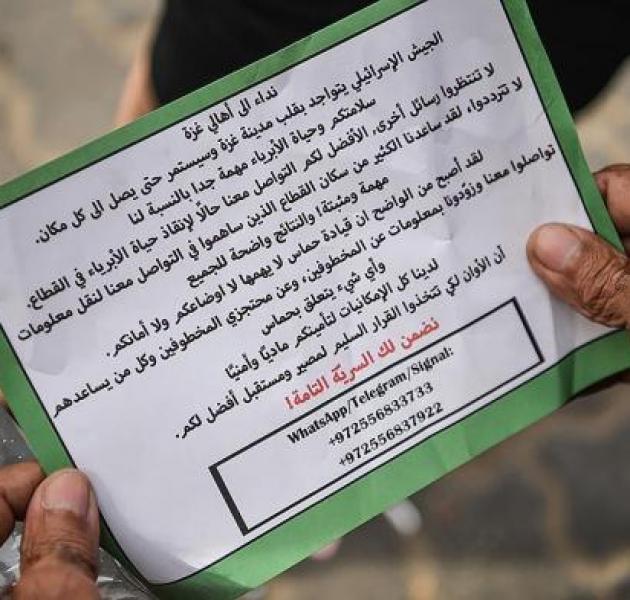 نداء الى أهالي غزة
الجيش الإسرائيلي يتواجد بقلب مدينة غزة وسيستمر حتى يصل الى كل مكان.
سلامتكم وحياة الأبرياء مهمة جدا بالنسبة لنا
لا تنتظروا رسائل أخرى، الأفضل لكم التواصل معنا حالًا لإنقاذ حياة الأبرياء في القطاع.
لا تترددوا، لقد ساعدنا الكثير من سكان القطاع الذين ساهموا في التواصل معنا لنقل معلومات
مهمة ومثبتة! والنتائج واضحة للجميع
لقد أصبح من الواضح ان قيادة حماس لا يهمها لا اوضاعكم ولا أمانكم.
تواصلوا معنا وزوّدونا بمعلومات عن المخطوفين، وعن محتجزي المخطوفين وكل من يساعدهم
وأي شيء يتعلق بحماس
لدينا كل الإمكانيات لتأمينكم ماديًا وأمنيًا
أن الأوان لكي تتخذوا القرار السليم لمصير ومستقبل أفضل لكم.
نضمن لك السريّة التامة!
WhatsApp/Telegram/Signal:
+972556833733
+972556837922